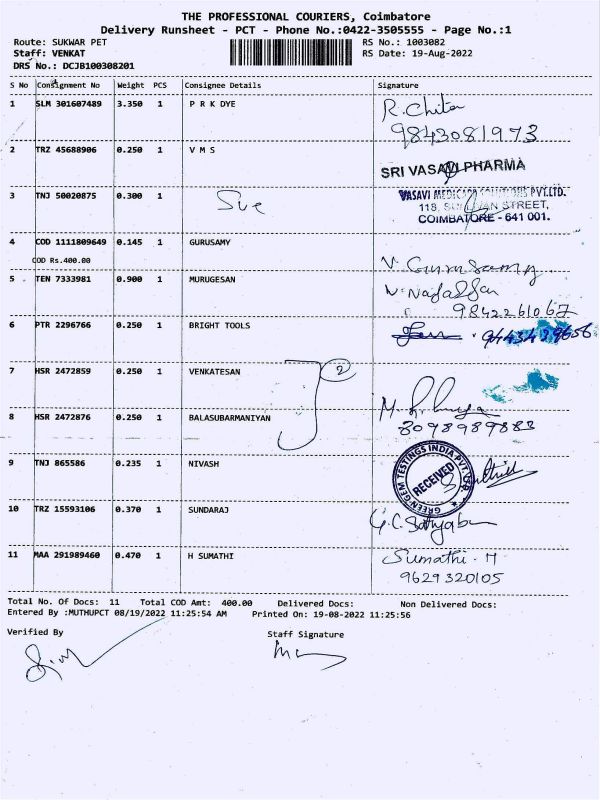 THE PROFESSIONAL COURIERS, Coimbatore
Delivery Runsheet - PCT - Phone No.:0422-3505555 - Page No.:1
Route: SUKWAR PET RS No.: 1003082
Staff: VENKAT RS Date: 19-Aug-2022
DRS No.: DCJB100308201
S No Consignment No Weight PCS Consignee Details Signature
1 SLM 301607489 3.350 1 P R K DYE R. Chitra
9843081973
2 TRZ 45688906 0.250 1 V M S SRI VASAVI PHARMA
3 TNJ 50020875 0.300 1 Sve VASAVI MEDICARE SOLUTIONS PVT.LTD.
118, SULLIVAN STREET,
COIMBATORE - 641 001.
4 COD 1111809649 0.145 1 GURUSAMY V. Gurusamy
COD Rs.400.00
5 TEN 7333981 0.900 1 MURUGESAN
9842261067
6 PTR 2296766 0.250 1 BRIGHT TOOLS
7 HSR 2472859 0.250 1 VENKATESAN 2
8 HSR 2472876 0.250 1 BALASUBARMANIYAN M.
8098989883
9 TNJ 865586 0.235 1 NIVASH GREEN GEM TESTINGS INDIA PVT. LTD.
RECEIVED
10 TRZ 15593106 0.370 1 SUNDARAJ G.C.
11 MAA 291989460 0.470 1 H SUMATHI Sumathi. H
9629320105
Total No. Of Docs: 11 Total COD Amt: 400.00 Delivered Docs: Non Delivered Docs:
Entered By :MUTHUPCT 08/19/2022 11:25:54 AM Printed On: 19-08-2022 11:25:56
Verified By Staff Signature